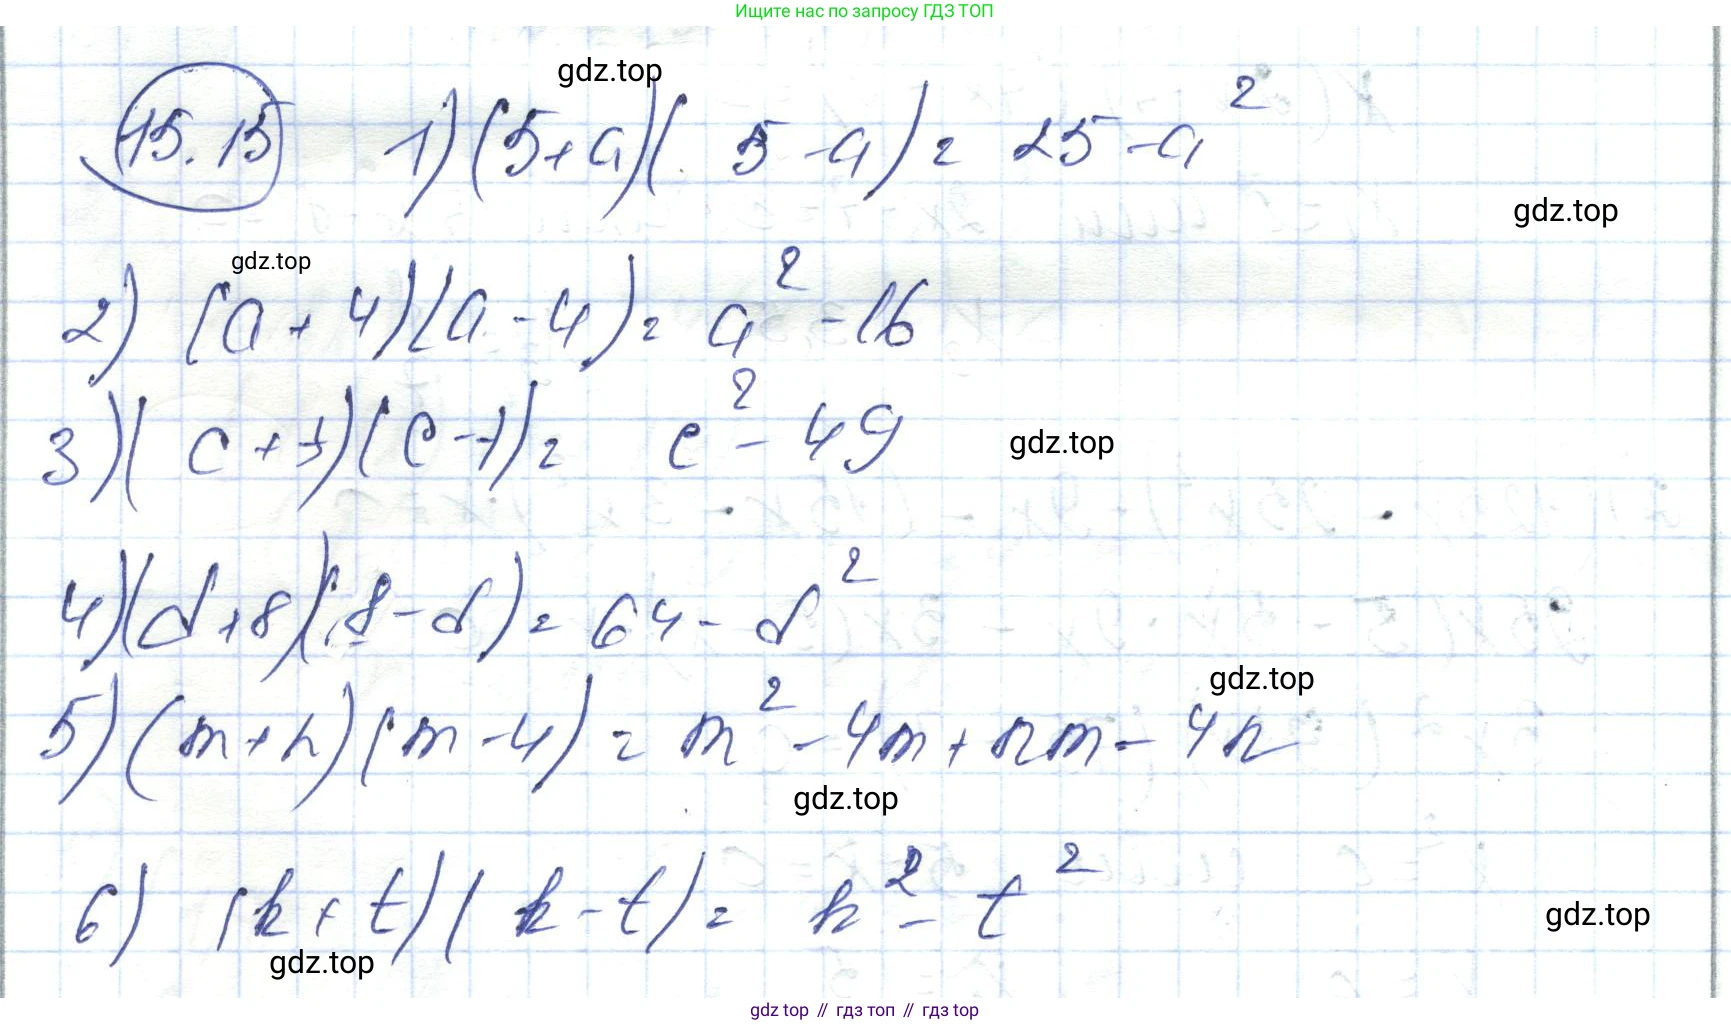 Ищите нас по запросу ГДЗ ТОП
gdz.top
15.15 1) (5+a)(5-a) = 25-a²
gdz.top
gdz.top
2) (a+4)(a-4) = a²-16
3) (c+7)(c-7) = c²-49
gdz.top
4) (d+8)(8-d) = 64-d²
gdz.top
5) (m+n)(m-4) = m²-4m+nm-4n
gdz.top
6) (k+t)(k-t) = k²-t²
gdz.top
gdz.top
gdz top // гдз топ // гдз top